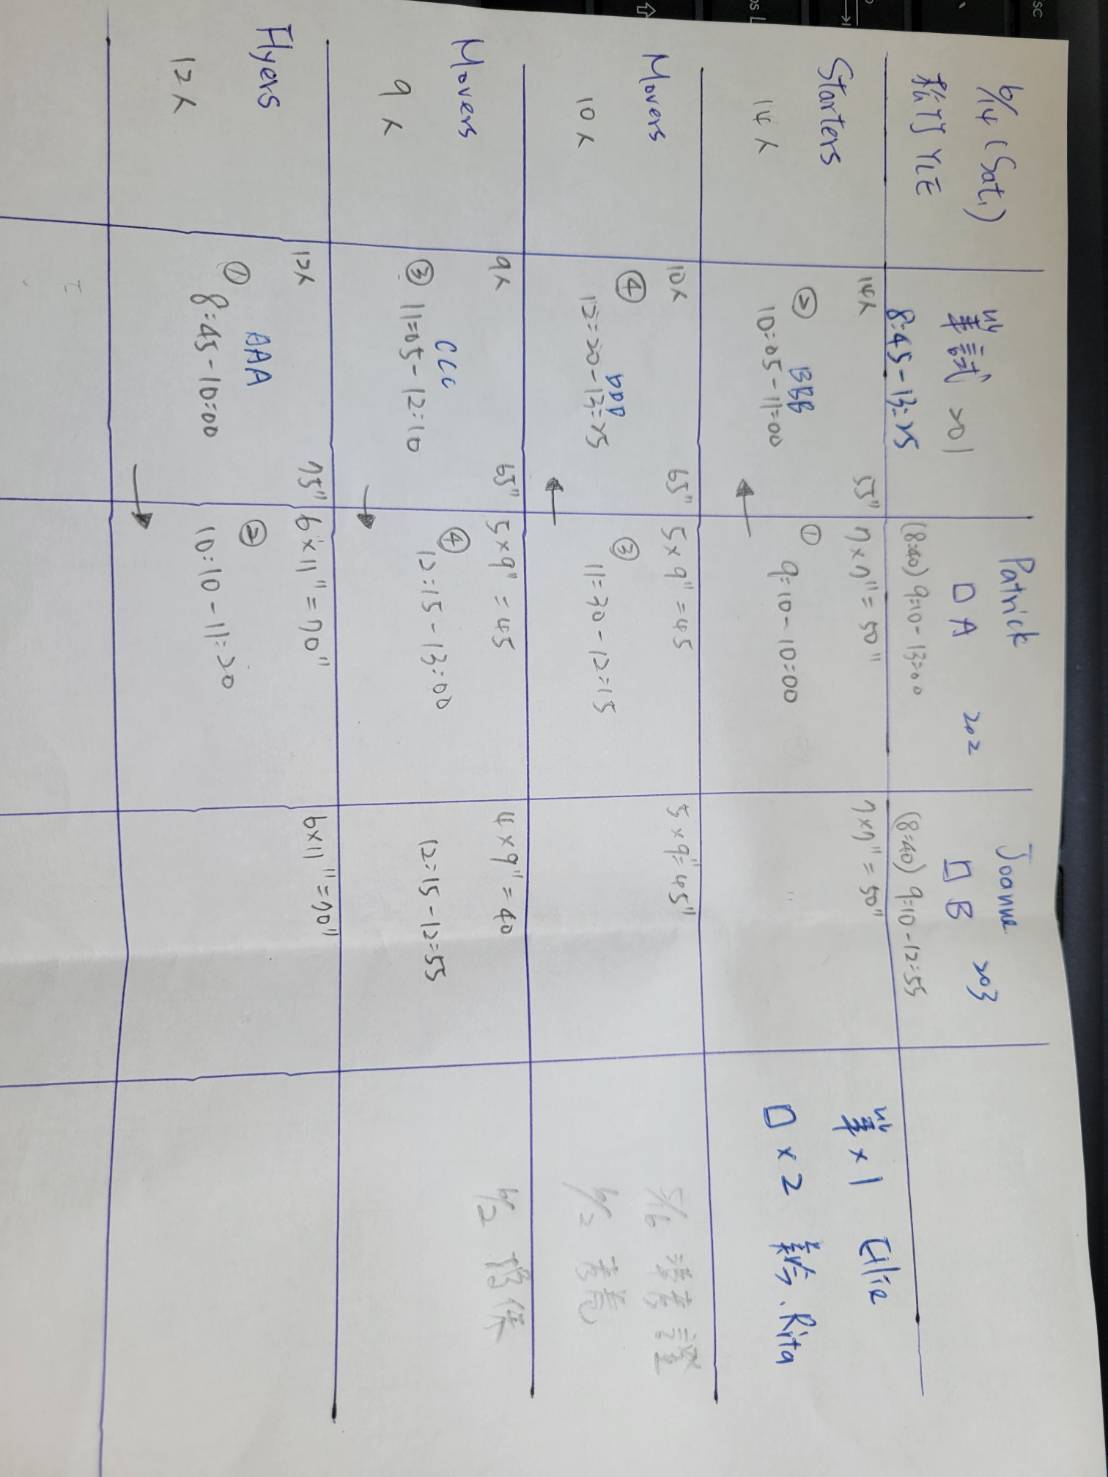 6/14 (Sat.)
松竹 YLE
筆試 201
8:45-13:25
Patrick
口 A 202
(8:40) 9:10-13:00
Joanne
口 B 203
(8:40) 9:10-12:55
Starters
14人
14人 55"
② BBB
10:05-11:00
7×7"=50"
①
9:10-10:00
7×7"=50"
筆×1 Ellie
口×2 . Rita
Movers
10人
10人 65"
④ DDD
12:20-13:25
5×9"=45
③
11:30-12:15
5×9"=45"
5/16 准考證
6/2
Movers
9人
9人 65"
③ CCC
11:05-12:10
5×9"=45
④
12:15-13:00
4×9"=40
12:15-12:55
6/2
Flyers
12人
12人 75"
① AAA
8:45-10:00
6×11"=70"
②
10:10-11:20
6×11"=70"